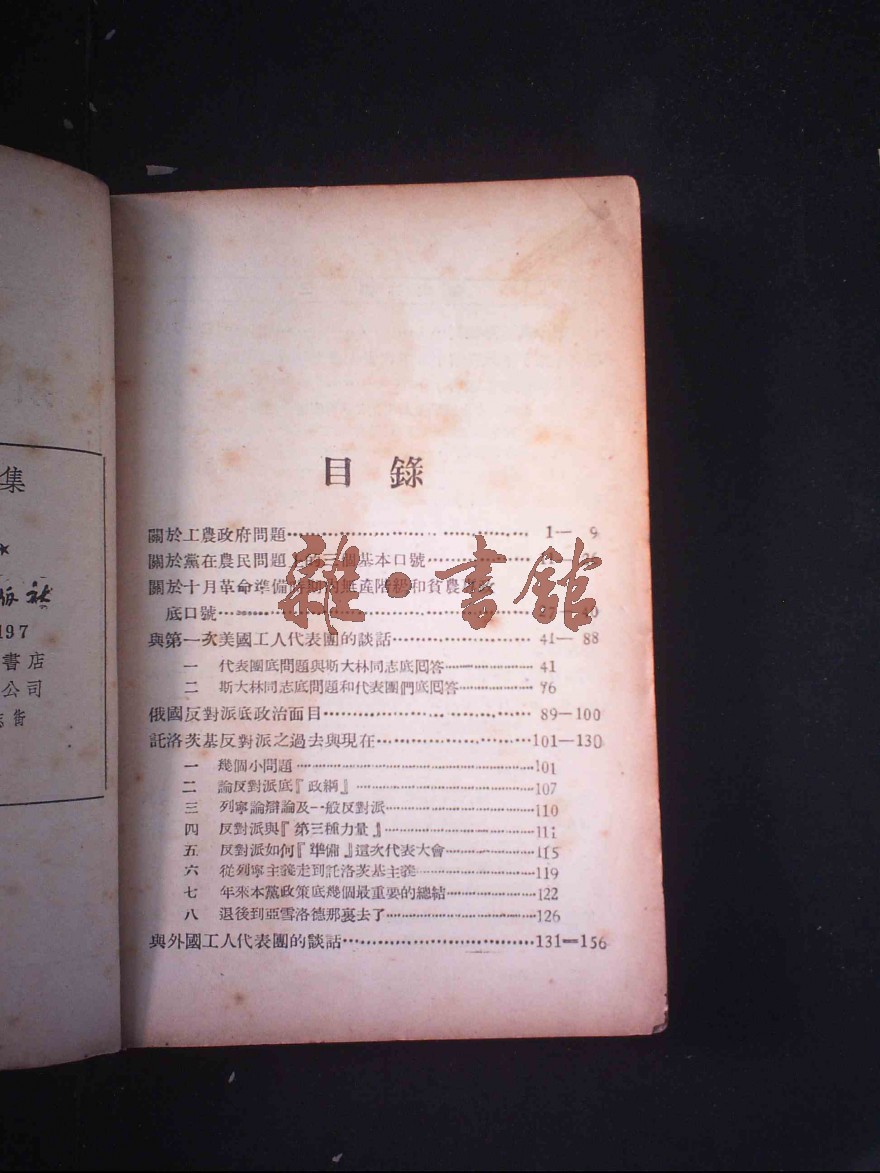 集
197
書店
公司
目錄
關於工農政府問題…………………………1—9
關於黨在農民問題上的三個基本口號…………
關於十月革命準備時期內無產階級和貧農專政
底口號…………………………
與第一次美國工人代表團的談話…………………41—88
一 代表團底問題與斯大林同志底囘答………………41
二 斯大林同志底問題和代表團們底囘答………………76
俄國反對派底政治面目…………………………89—100
託洛茨基反對派之過去與現在…………………101—130
一 幾個小問題…………………………101
二 論反對派底『政綱』…………………………107
三 列寧論辯論及一般反對派…………………………110
四 反對派與『第三種力量』…………………………111
五 反對派如何『準備』這次代表大會………………115
六 從列寧主義走到託洛茨基主義………………119
七 年來本黨政策底幾個最重要的總結………………122
八 退後到亞雪洛德那裏去了…………………………126
與外國工人代表團的談話…………………………131—156
雜·書館